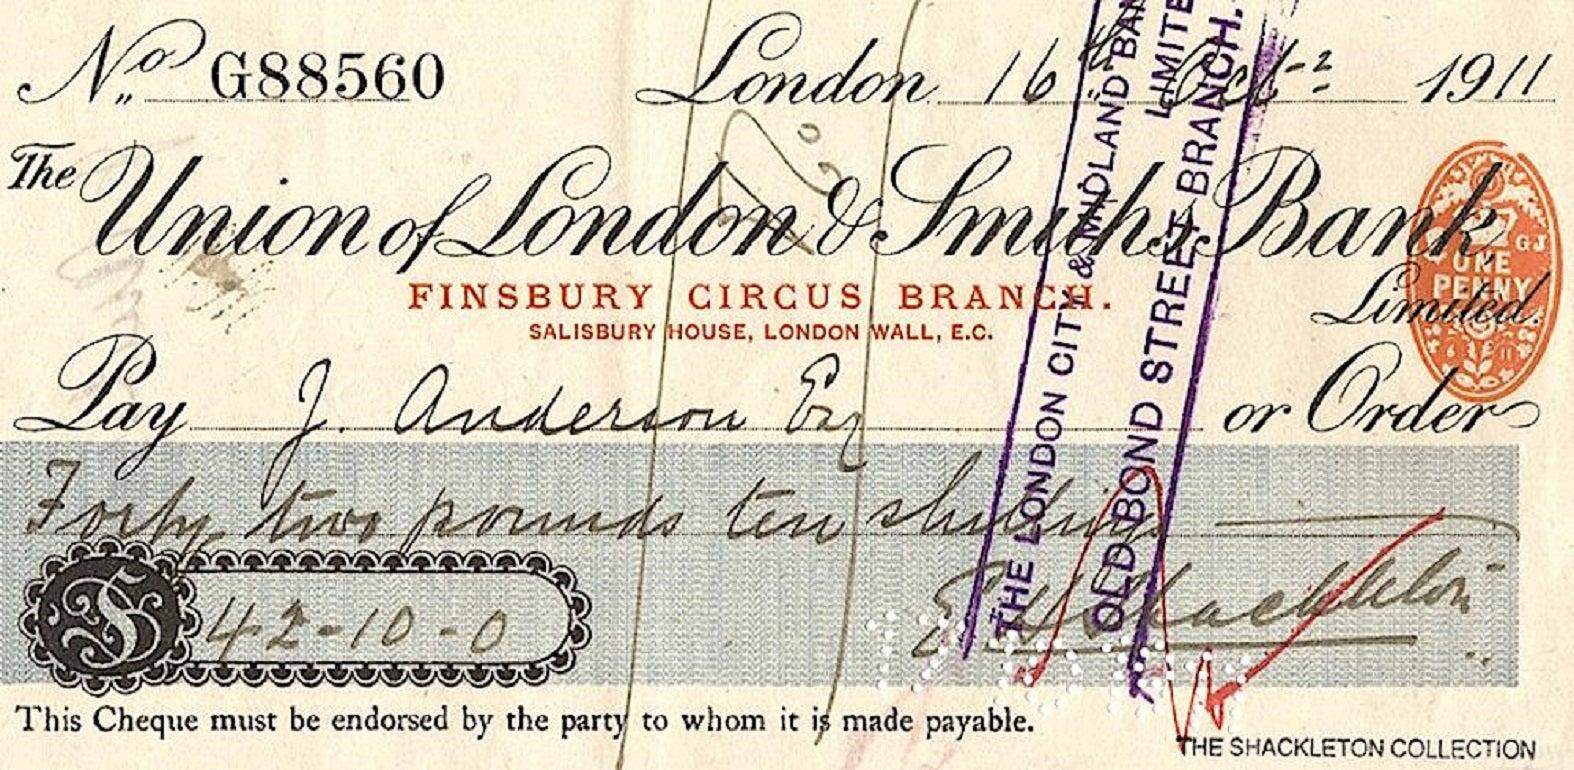 No. G88560 London 16th Oct 1911
The Union of London & Smiths Bank, Limited.
FINSBURY CIRCUS BRANCH.
SALISBURY HOUSE, LONDON WALL, E.C.
ONE PENNY
Pay J. Anderson Esq or Order
Forty two pounds ten shillings
£ 42-10-0
E H Shackleton
THE LONDON CITY & MIDLAND BANK LIMITED
OLD BOND STREET BRANCH.
This Cheque must be endorsed by the party to whom it is made payable.
THE SHACKLETON COLLECTION